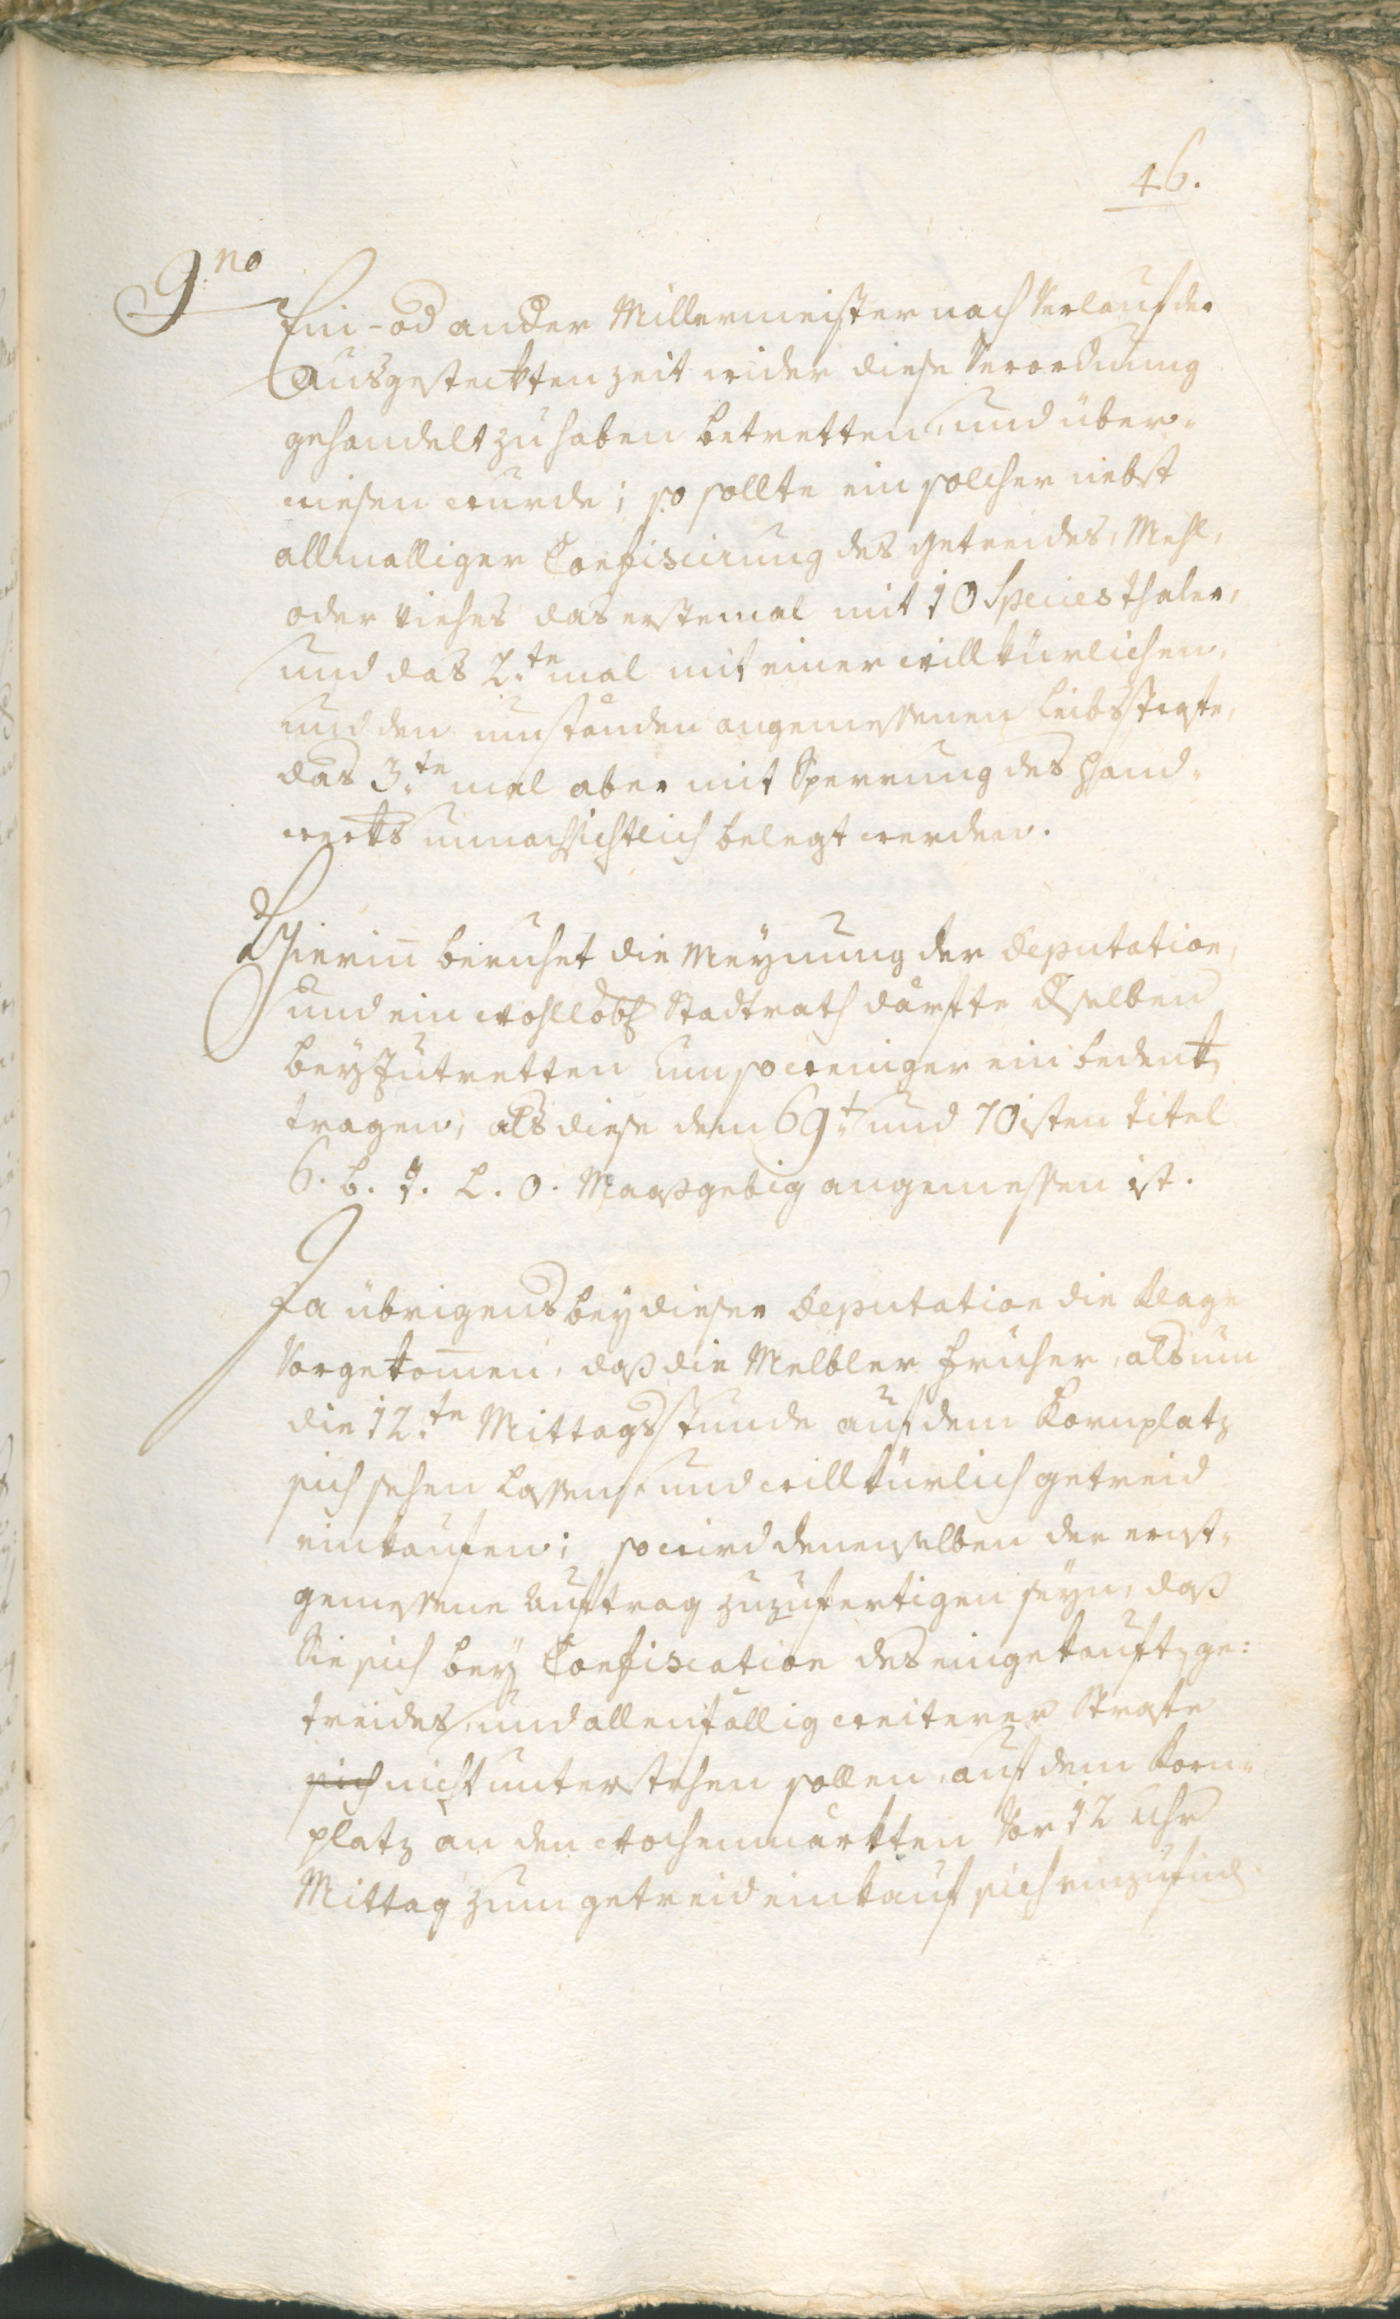 46.
9no
Ein- od ander Millermeister nach Verlauf der
ausgesteckten zeit wider diese Verordnung
gehandelt zu haben betretten, und über-
wiesen wurde; so sollte ein solcher nebst
allmalliger Confiscirung des Getreides, Mehl,
oder Viehes das erstemal mit 10 Species thaler,
und das 2.te mal mit einer willkürlichen,
und den umständen angemessenen Leibsstrafe,
das 3.te mal aber mit Sperrung des Hand-
werks unnachsichtlich belegt werden.
Hierinn beruhet die Meynung der Deputation,
und ein wohllobl Stadtrath därfte dselben
beyzutretten um so weniger ein bedenk
tragen, als diese dem 69.t und 70isten titel
6. b. T. L. O. Maaßgebig angemessen ist.
Da übrigens bey dieser Deputation die Klage
Vorgekom̄en, daß die Melbler früher, als um
die 12.te Mittagsstunde auf dem Kornplatz
sich sehen lassen, und willkürlich getreid
einkaufen; so wird denenselben der erst-
gemessene Auftrag zuzufertigen seyn, daß
Sie sich bey Confiscation des eingekauft ge:
treides, und allenfällig weiterer Strafe
sich nicht unterstehen sollen, auf dem Korn-
platz an den Wochenmärkten Vor 12 Uhr
Mittag zum getreid einkauf sich einzufind